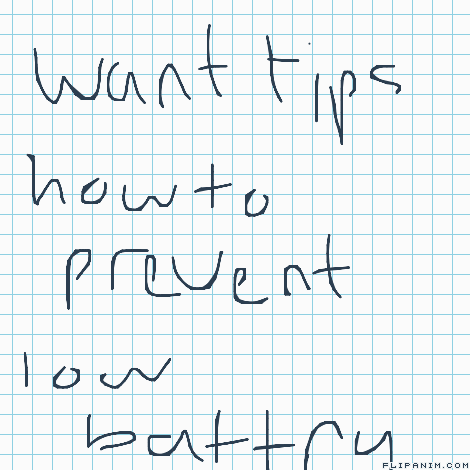 want tips
how to
prevent
low
battry
FLIPANIM.COM